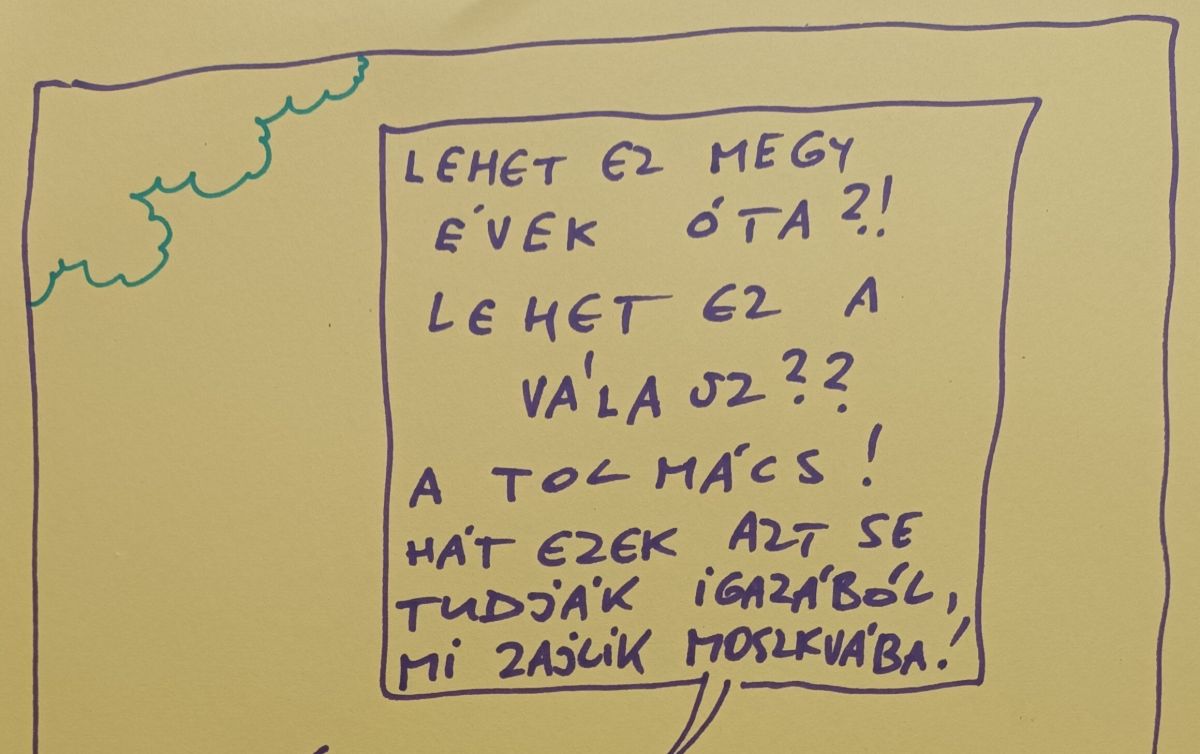 LEHET EZ MEGY
ÉVEK ÓTA?!
LEHET EZ A
VÁLASZ??
A TOLMÁCS!
HÁT EZEK AZT SE
TUDJÁK IGAZÁBÓL,
MI ZAJLIK MOSZKVÁBA!